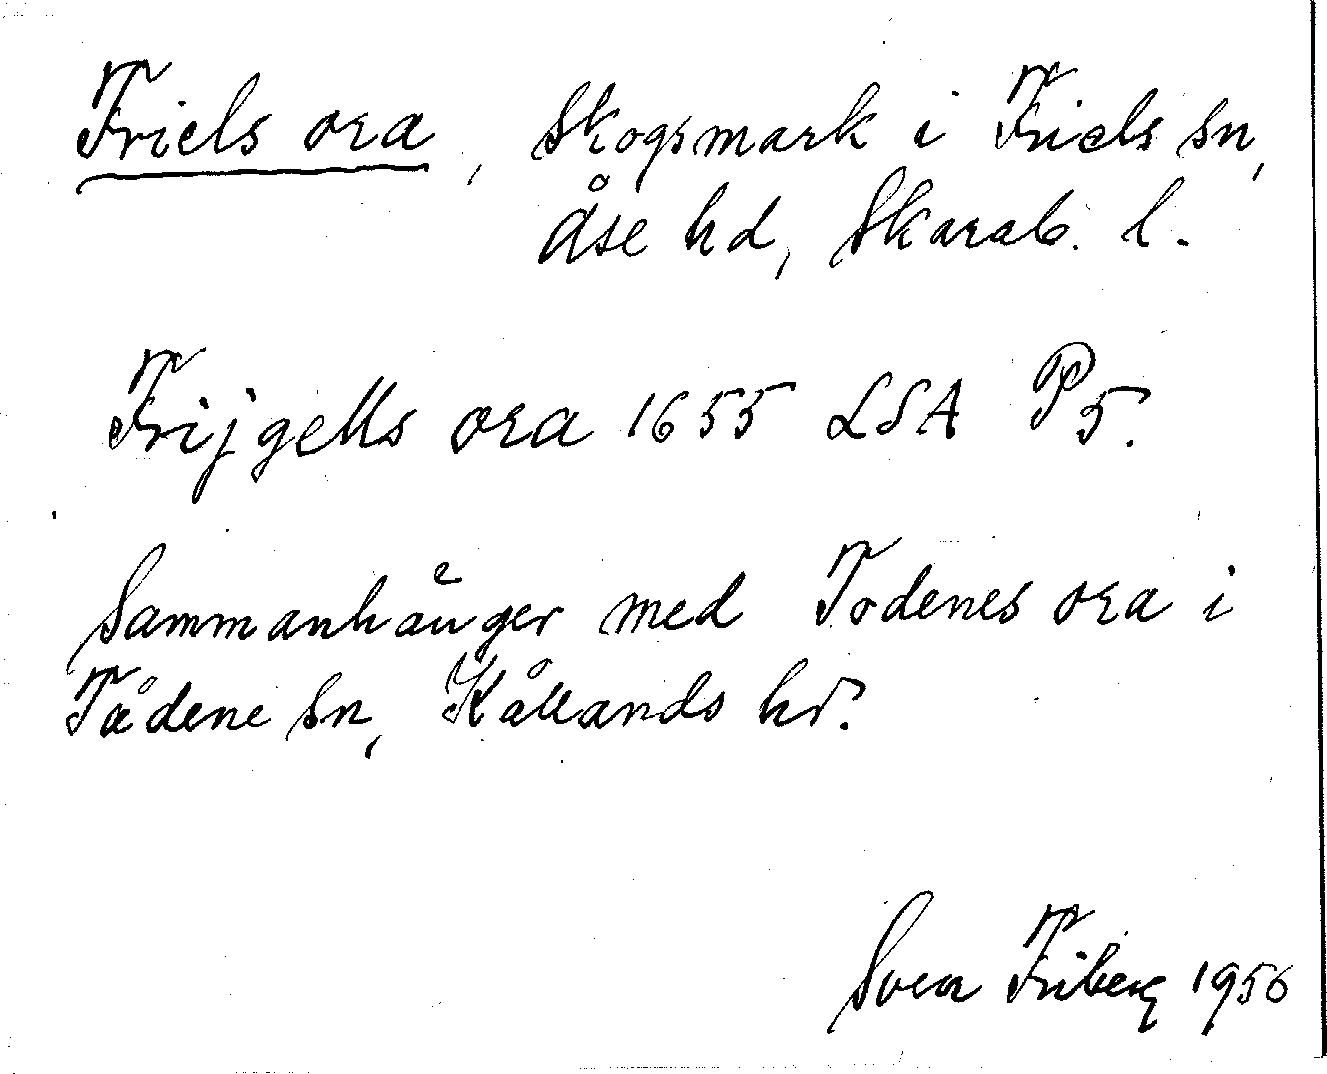 Friels ora, Skogsmark i Friels sn,
Åse hd, Skarab. l.
Frijgells ora 1655 LSA P5.
Sammanhänger med Todenes ora i
Tådene sn, Kållands hd.
Sven Friberg 1956